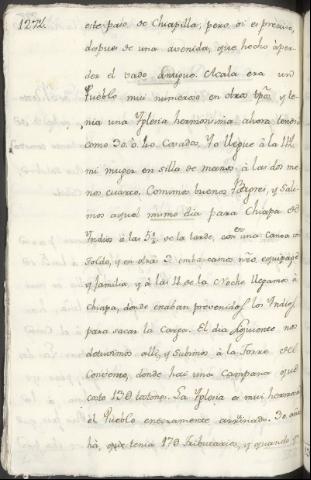 1272.
este paso de Chiapilla, pero si es preciso,
dspues de una avenida, que hecho à per-
der el vado antiguo. Acala era un
Pueblo mui numeroso en otros tpos, y te-
nia una Yglesia hermosisima ahora tendrà
como 30. ò 40. Casadas. Yo llegue à la 1½
mi muger en silla de manos à las dos me-
nos quarto. Comimos buenos Bagres, y Sali-
mos aquel mismo dia para Chiapa de
Yndios à las 5½ de la tarde, en una Canoa con
toldo, y en otras 2 embarcamos nro equipaje
y familia, y à las 11 de la Noche llegamos à
Chiapa, donde estaban prevenidos los Yndios
para sacar la Carga. El dia siguiente nos
detuvimos alli, y subimos à la Torre del
Convento, donde hai una Campana que
costo 130 tostones. La Yglesia es mui hermosa
el Pueblo enteramente arruinado. 30 años
hà, que tenia 170 tributarios, y quando